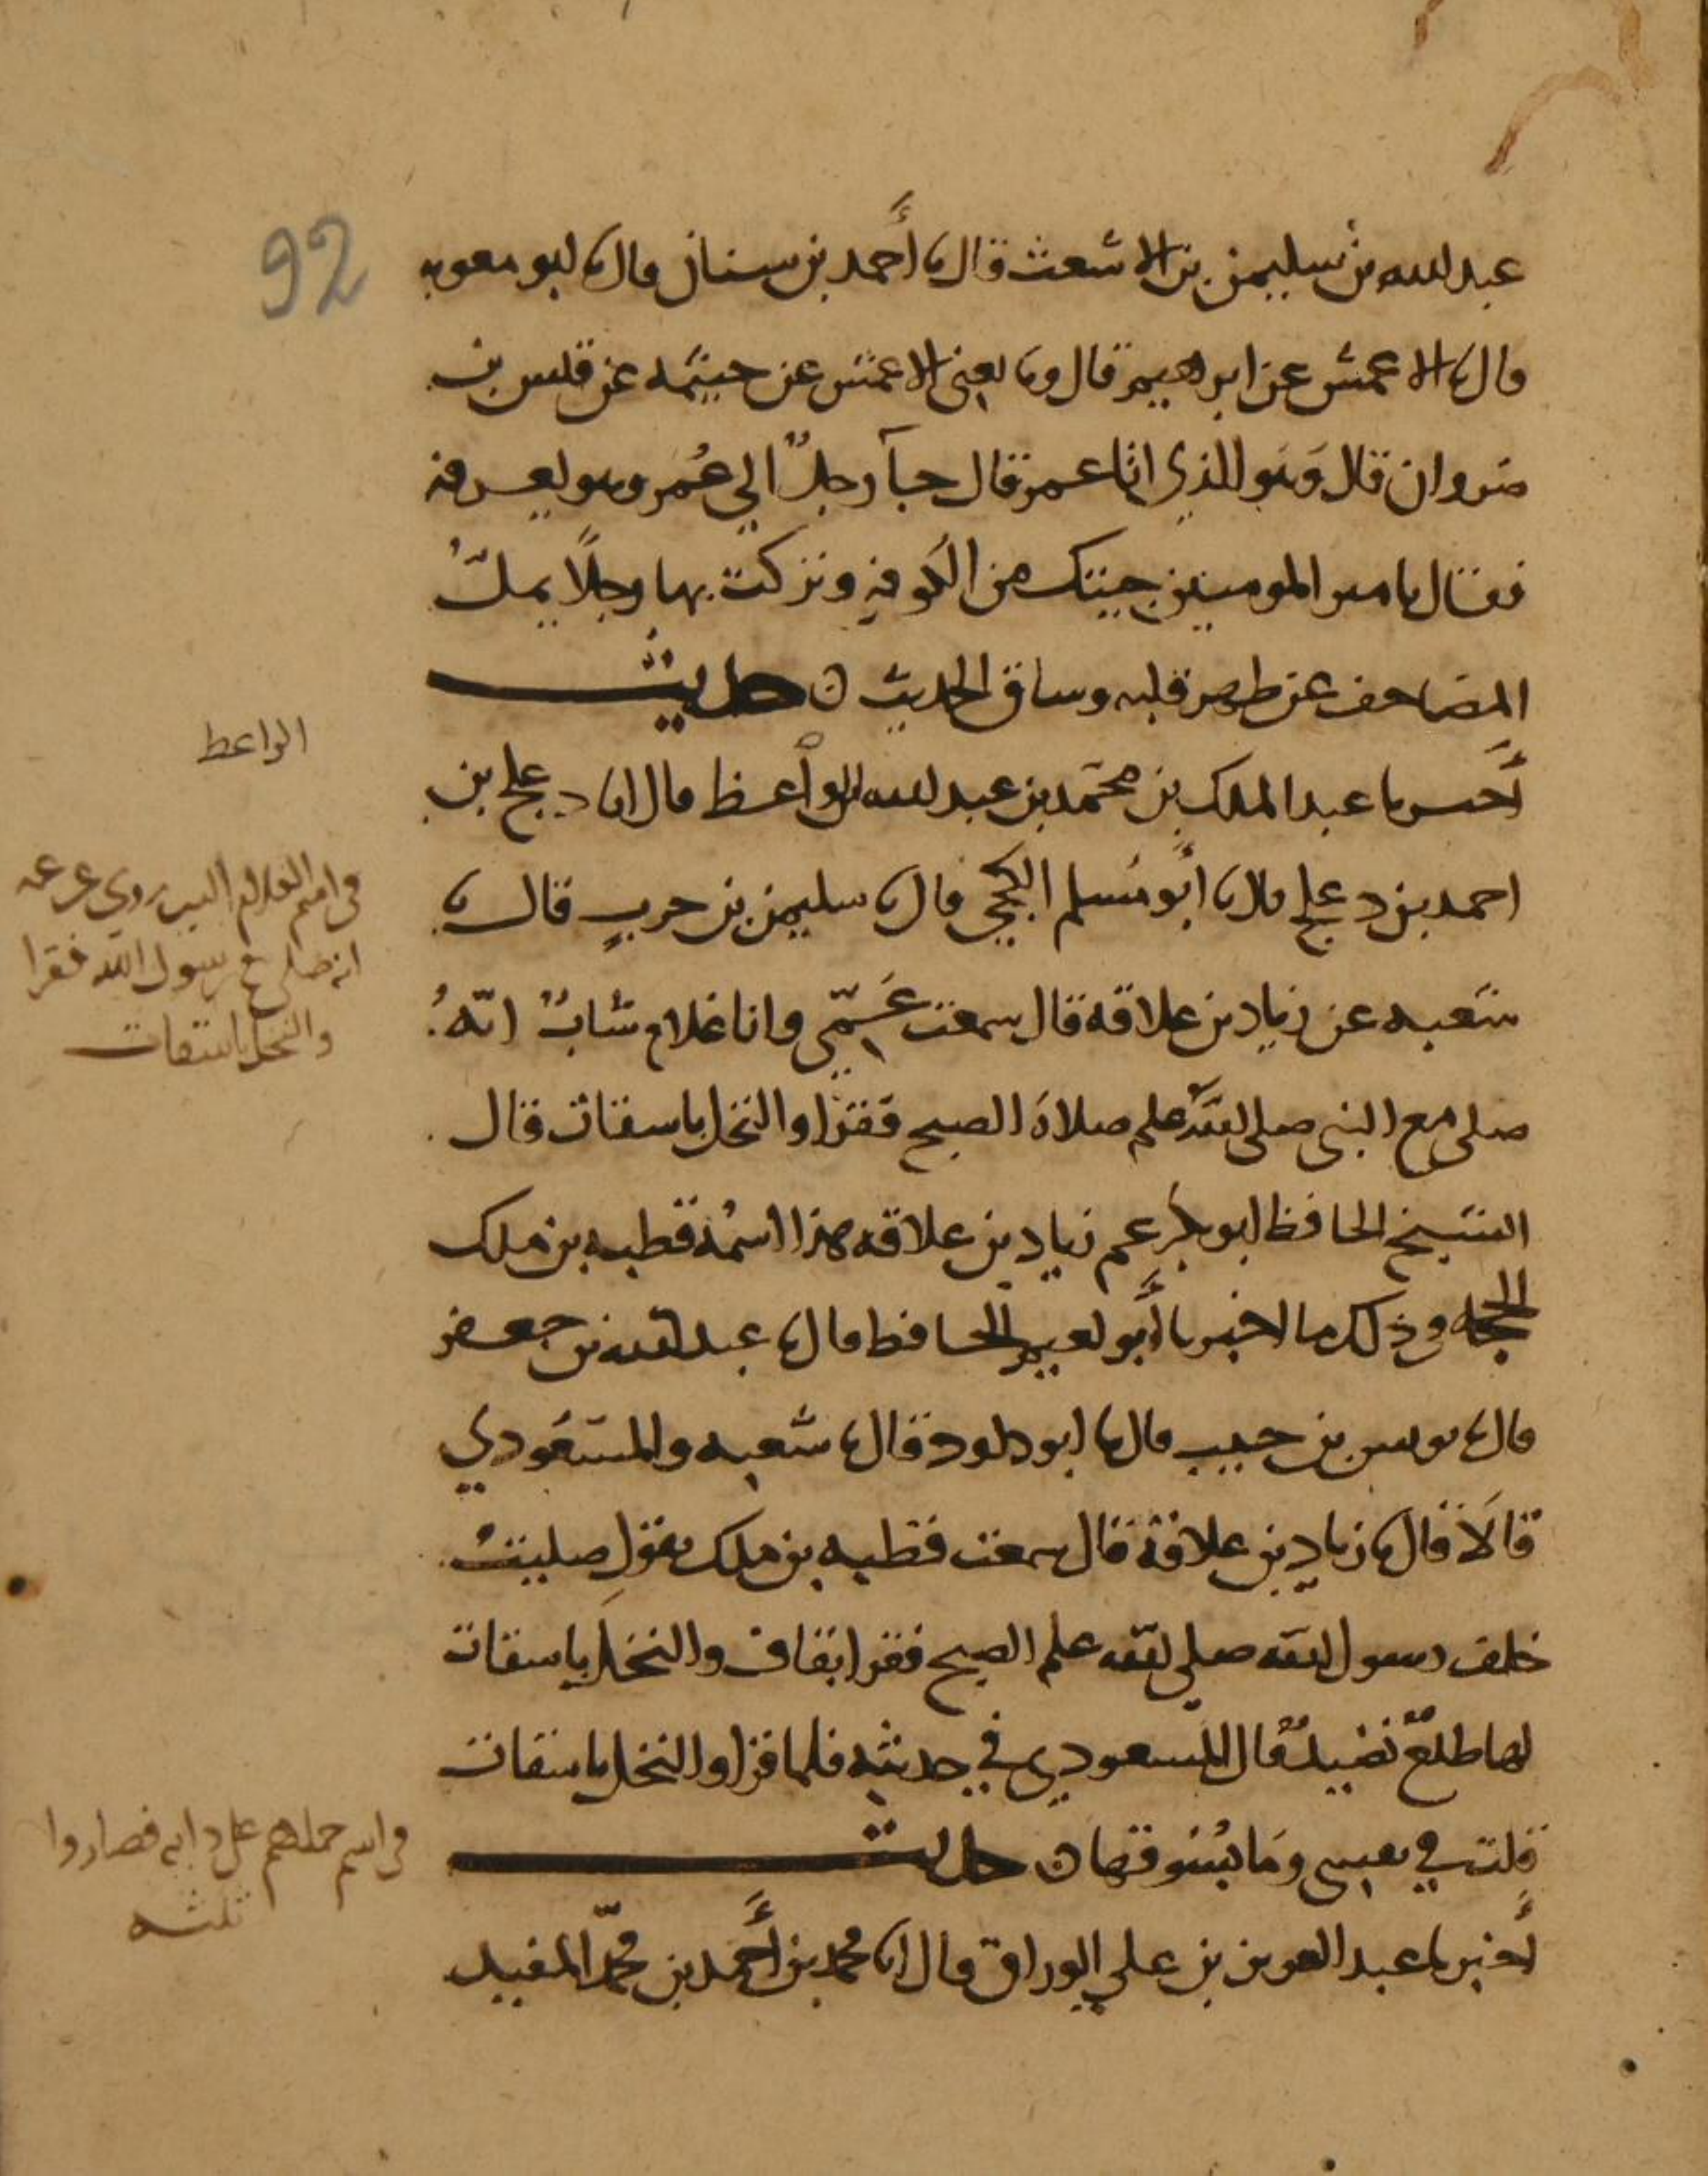 92
عبد الله بن سليمن بن الاشعث قال نا أحمد بن سنان قال نا ابو معويه
قال نا الاعمش عن ابرهيم قال ونا يعنى الاعمش عن خيثمه عن قيس بن
مروان قال وهو الذي اتا عمر قال جآ رجلٌ الي عُمر وهو بعرفه
فقال يا مير المومنين جيتك من الكوفه وتركت بها رجلًا يملّ
المصاحف عن ظهر قلبه وساق الحديث ن حديث
أخبرنا عبد الملك بن محمد بن عبد الله الواعظ قال انا دعلج بن
احمد بن دعلج قال نا أبو مُسلم الكجي قال نا سليمن بن حربٍ قال نا
شعبه عن زياد بن علاقة قال سمعت عَمّي وانا غلام شابٌ انّهُ
صلى مع النبى صلى الله علم صلاة الصبح فقرا والنخل باسقات قال
الشيخ الحافظ ابو بكر عم زياد بن علاقه هذا اسمُه قطبه بن ملك
وذلك ما اخبرنا أبو نعيم الحافظ قال نا عبد الله بن جعفر
قال نا يونس بن حبيب قال نا ابو داود قال نا شعبه والمسعودي
قالا قال نا زياد بن علاقة قال سمعت قطبه بن ملك يقول صليتُ
خلف رسول الله صلى الله علم الصبح فقرا بقاف والنخل باسقات
لها طلعٌ نضيدٌ قال المسعودي في حديثه فلما قرا والنخل باسقات
قلت في نفسي وما بُسوقها ن حديث
أخبرنا عبد العزيز بن علي الوراق قال انا محمد بن أحمد بن محمّد المفيد
الواعط
انه صلى مع رسول الله فقرا
والنخل باسقات
فصاروا
ثلثه